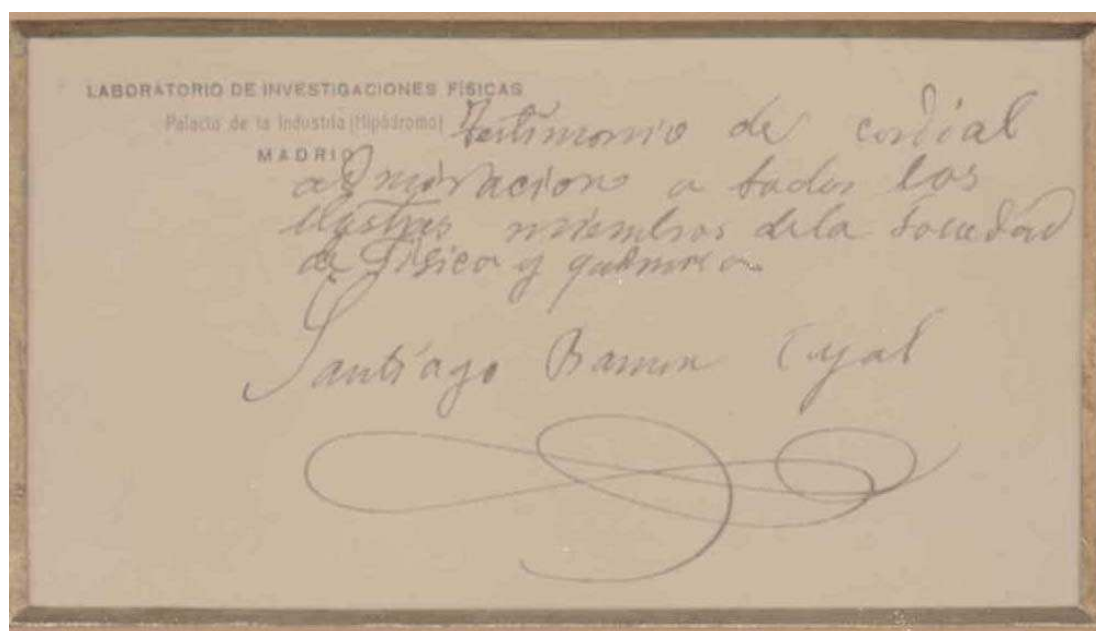 LABORATORIO DE INVESTIGACIONES FÍSICAS
Palacio de la Industria (Hipódromo)
MADRID
Testimonio de cordial
admiracion a todos los
ilustres miembros de la Sociedad
de Fisica y quimica
Santiago Ramon Cajal